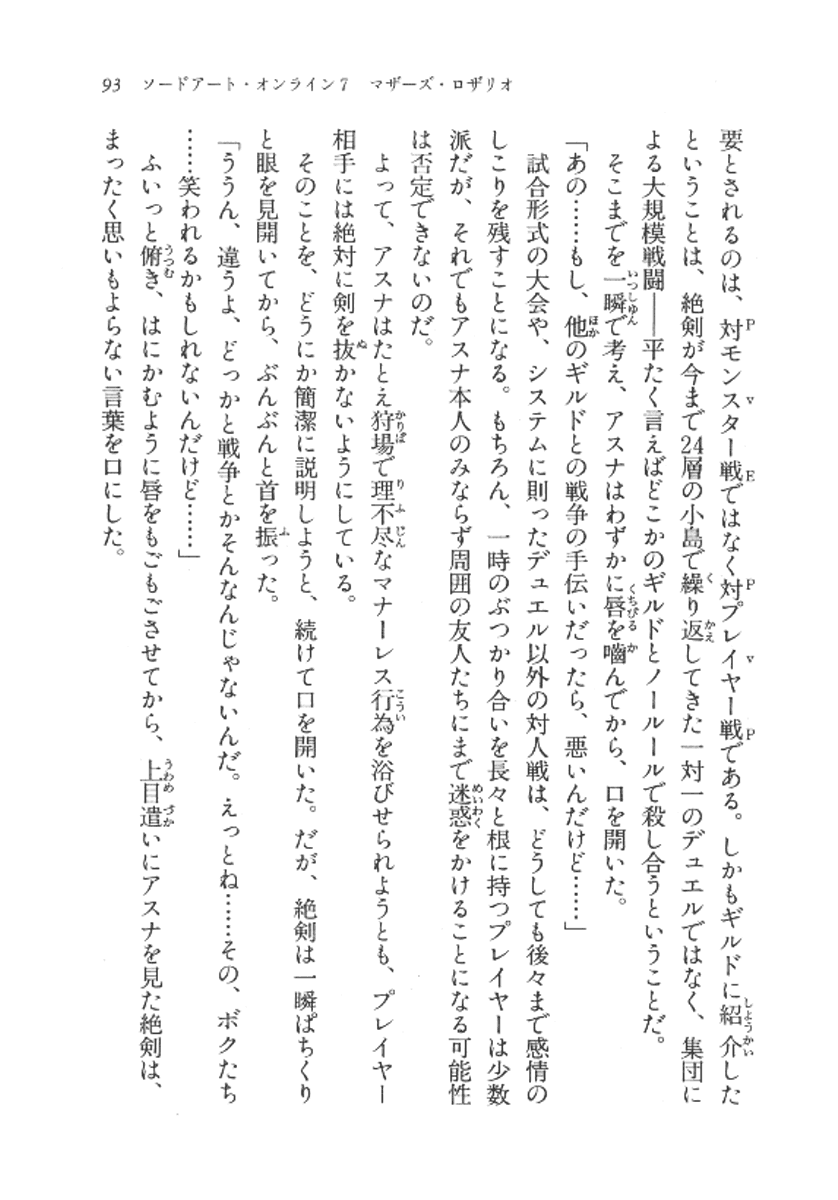 93　ソードアート・オンライン7　マザーズ・ロザリオ
要とされるのは、対モンスター戦ではなく対プレイヤー戦である。しかもギルドに紹介した
ということは、絶剣が今まで24層の小島で繰り返してきた一対一のデュエルではなく、集団に
よる大規模戦闘――平たく言えばどこかのギルドとノールールで殺し合うということだ。
　そこまでを一瞬で考え、アスナはわずかに唇を嚙んでから、口を開いた。
「あの……もし、他のギルドとの戦争の手伝いだったら、悪いんだけど……」
　試合形式の大会や、システムに則ったデュエル以外の対人戦は、どうしても後々まで感情の
しこりを残すことになる。もちろん、一時のぶつかり合いを長々と根に持つプレイヤーは少数
派だが、それでもアスナ本人のみならず周囲の友人たちにまで迷惑をかけることになる可能性
は否定できないのだ。
　よって、アスナはたとえ狩場で理不尽なマナーレス行為を浴びせられようとも、プレイヤー
相手には絶対に剣を抜かないようにしている。
　そのことを、どうにか簡潔に説明しようと、続けて口を開いた。だが、絶剣は一瞬ぱちくり
と眼を見開いてから、ぶんぶんと首を振った。
「ううん、違うよ、どっかと戦争とかそんなんじゃないんだ。えっとね……その、ボクたち
……笑われるかもしれないんだけど……」
　ふいっと俯き、はにかむように唇をもごもごさせてから、上目遣いにアスナを見た絶剣は、
まったく思いもよらない言葉を口にした。